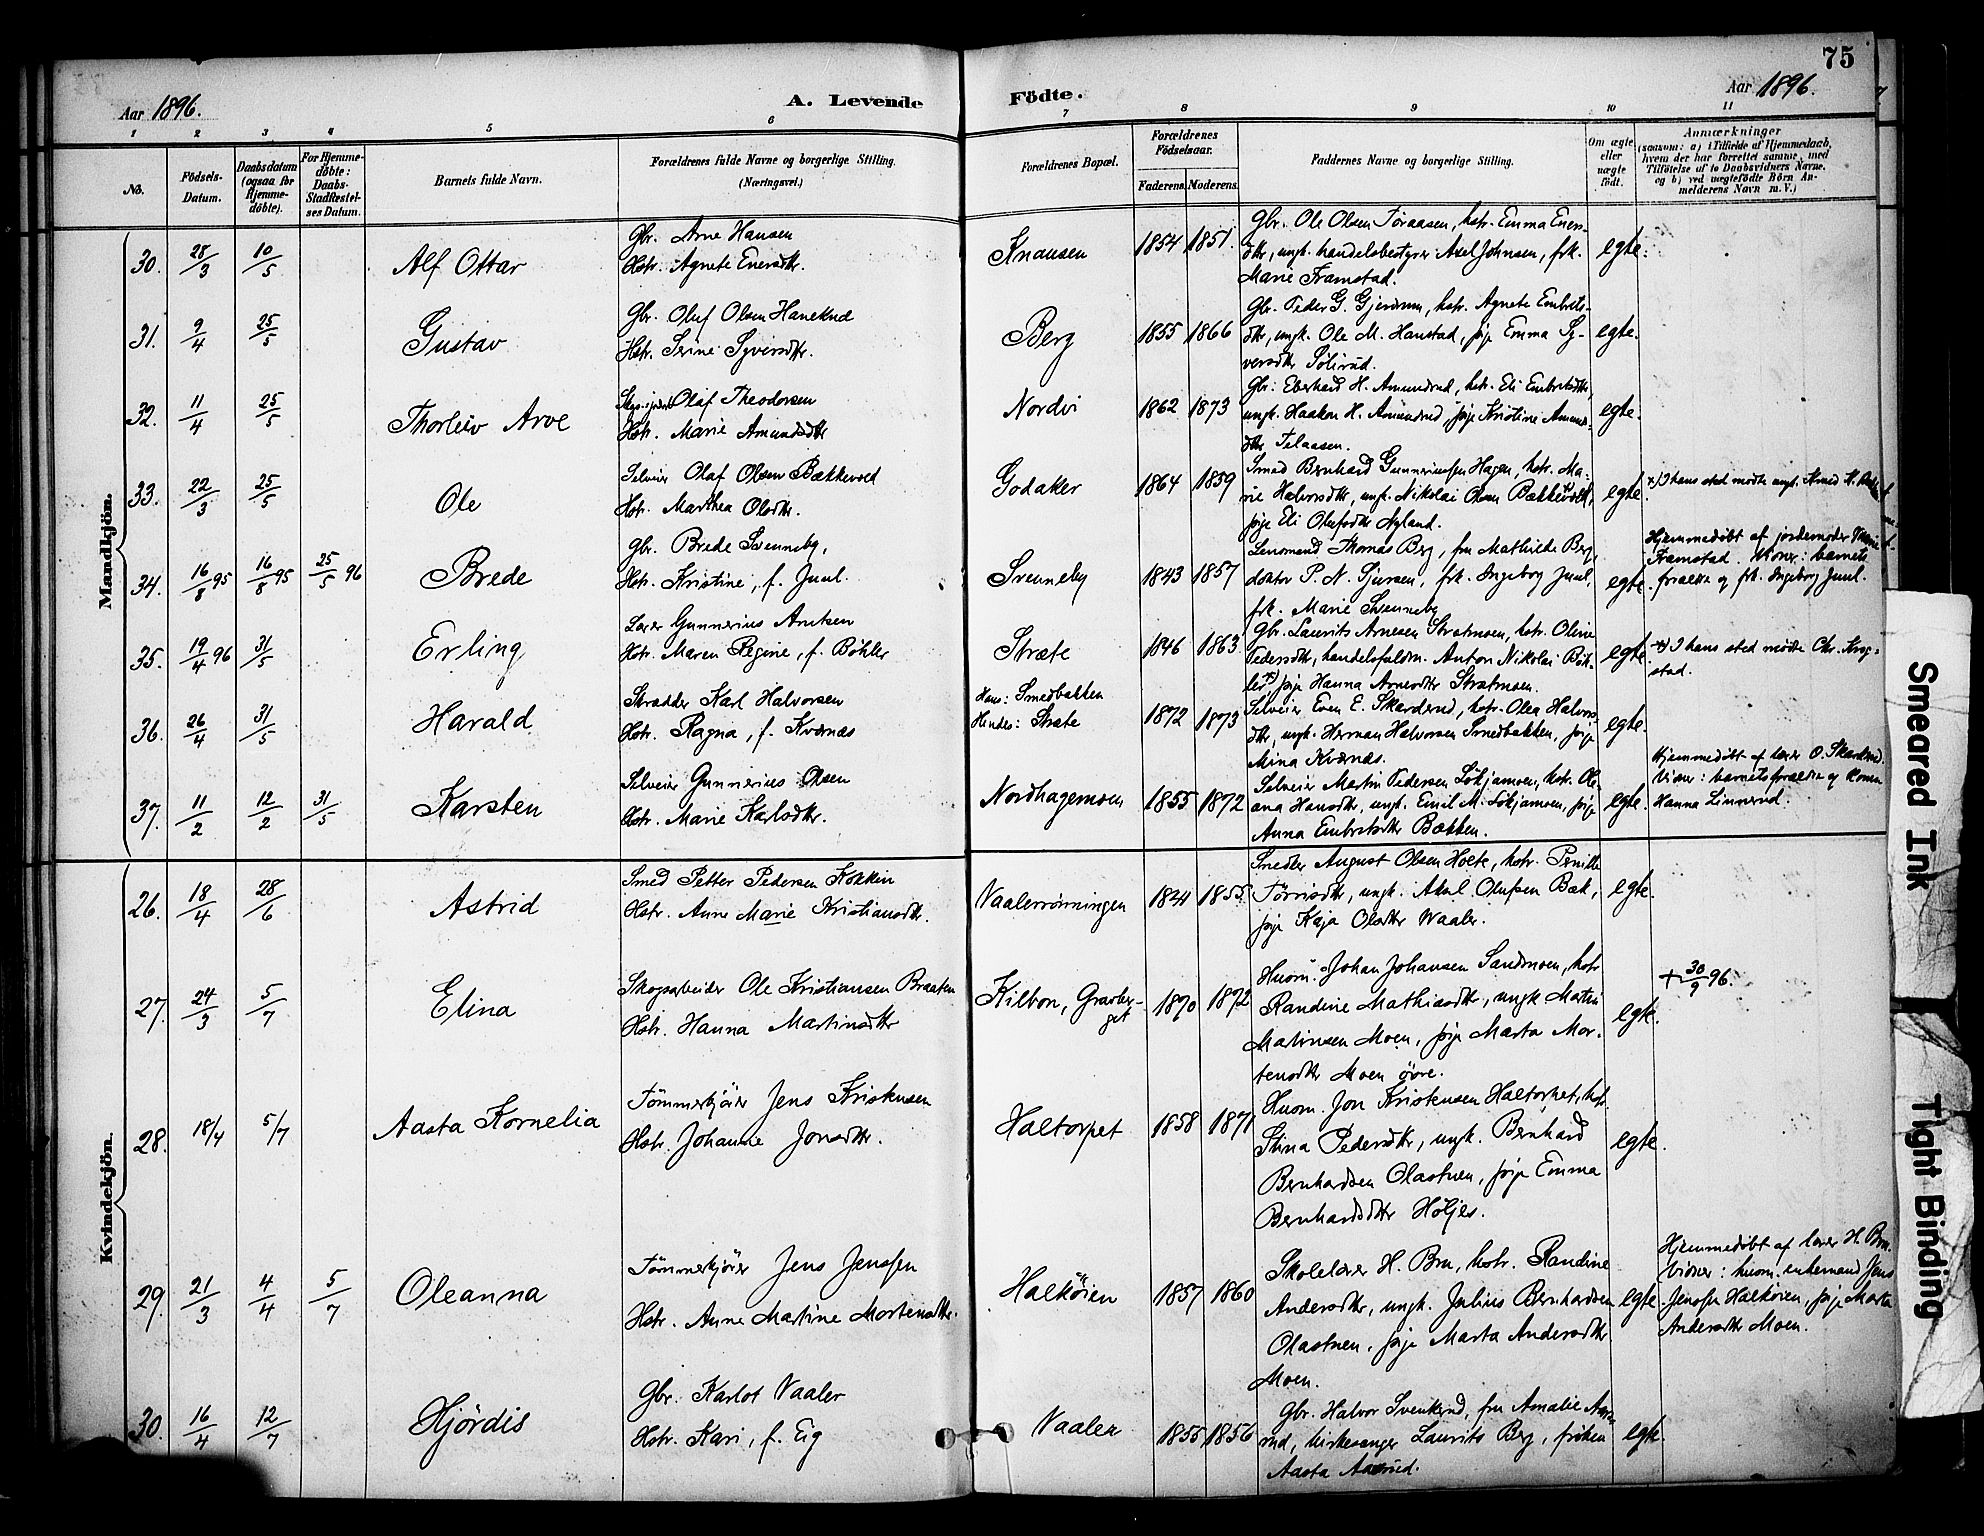 75
Aar 1896.
A. Levende Födte.
Aar 1896.
1 2 3 4 5 6 7 8 9 10 11
No.
Födsels-
Datum.
Daabsdatum
(ogsaa for
Hjemme-
döbte).
For Hjemme-
döbte:
Daabs-
Stadfæstel-
ses Datum.
Barnets fulde Navn.
Forældrenes fulde Navne og borgerlige Stilling.
(Næringsvei.)
Forældrenes Bopæl.
Forældrenes
Födselsaar.
Faderens. Moderens.
Faddernes Navne og borgerlige Stilling.
Om ægte
eller
uægte
födt.
Anmærkninger
(saasom: a) i Tilfælde af Hjemmedaab,
hvem der har forrettet samme, med
Tilföielse af to Daabsvidners Navne,
og b) ved uægtefödte Börn An-
melderens Navn m. V.)
Mandkjön.
30. 28/3 10/5 Alf Ottar
Gbr. Arne Hansen
Hstr. Agnete Enersdtr.
Knausen 1854 1851.
Gbr. Ole Olsen Toraasen, hstr. Emma Eners-
dtr, ungk. handelsbestyrer Axel Johnsen, frk.
Marie Framstad.
egte.
31. 9/4 25/5 Gustav
Gbr. Oluf Olsen Hanekud
Hstr. Serine Syversdtr.
Berg 1855 1866
Gbr. Peder G. Gjerdrum, hstr. Agnete Embrets-
dtr, ungk. Ole M. Hanstad, pige Emma Sy-
versdtr Solirud.
egte.
32. 11/4 25/5 Thorleiv Arve
Olaf Theodorsen
Hstr. Marie Amundsdtr
Nordvi 1862 1873
Gbr. Eberhard H. Amundrud, hstr. Eli Embretsdtr,
ungk. Haakon H. Amundrud, pige Kristine Amunds-
dtr Telaasen.
egte.
33. 22/3 25/5 Ole
Selveier Olaf Olsen Bækkevold
Hstr. Marthea Olsdtr.
Godaker 1864 1859
Smed Bernhard Gunneriussen Hagen, hstr. Ma-
rie Halvorsdtr, ungk. Nikolai Olsen Bækkevold,
pige Eli Olufsdtr Nyland.
egte
x) I hans sted mødte ungk.
34. 16/8 95 16/8 95 25/5 96 Brede
Gbr. Brede Svenneby,
Hstr. Kristine, f. Juul.
Svenneby 1843 1857
Lensmand Thomas Berg, fru Mathilde Berg,
doktor P. N. Sjursen, frk. Ingeborg Juul,
frk. Marie Svenneby
egte.
Hjemmedøbt af jordemoder
Framstad. Vidner: barnets
forældre og frk. Ingeborg Juul.
35. 19/4 96 31/5 Erling
Lærer Gunnerius Arntsen
Hstr. Maren Regine, f. Böhler
Stræte 1846 1863
Gbr. Laurits Arnesen Strætmoen, hstr. Oline
Pedersdtr, handelsfuldm. Anton Nikolai Böh-
ler x) pige Hanna Arnesdtr Strætmoen.
egte
x) I hans sted mødte Chr. Krog-
stad.
36. 26/4 31/5 Harald
Skrædder Karl Halvorsen
Hstr. Ragna, f. Kværnæs
Hans: Smedbakken
Hendes: Stræte
1872 1873
Selveier Even E. Skarderud, hstr. Olea Halvors-
dtr, ungk. Herman Halvorsen Smedbakken, pige
Mina Kværnæs.
egte.
37. 11/2 12/2 31/5 Karsten
Selveier Gunnerius Olsen
Hstr. Marie Karlsdtr.
Nordhagemoen 1855 1872
Selveier Martin Pedersen Lökjamoen, hstr. Ole-
ana Hansdtr, ungk. Emil M. Lökjamoen, pige
Anna Embretsdtr Bækken.
egte.
Hjemmedøbt af lærer O. Skarderud.
Vidner: barnets forældre og kone
Hanna Linnerud.
Kvindekjön.
26. 18/4 28/6 Astrid
Smed Petter Pedersen Kokkin
Hstr. Anne Marie Kristiansdtr.
Vaalerrönningen 1841 1855
August Olsen Holte, hstr. Pernille
Törrisdtr, ungk. Aksel Olufsen Bæk,
pige Kaja Olsdtr Vaaler.
egte.
27. 24/3 5/7 Elina
Skogsarbeider Ole Kristiansen Braaten
Hstr. Hanna Martinsdtr
Kilbon, Gravber-
get
1870 1872
Husm. Johan Johansen Sandmoen, hstr
Randine Mathisdtr, ungk Martin
Martinsen Moen, pige Marta Mor-
tensdtr Moen övre.
egte.
+ 30/9 96.
28. 18/4 5/7 Aasta Kornelia
Tömmerkjörer Jens Kristensen
Hstr. Johanne Jonsdtr.
Haltorpet 1858 1871
Husm. Jon Kristensen Haltorpet, hstr
Stina Pedersdtr, ungk. Bernhard
Bernhardsen Olastuen, pige Emma
Bernhardsdtr Höljes.
egte.
29. 21/3 4/4 5/7 Oleanna
Tömmerkjörer Jens Jenssen
Hstr. Anne Martine Mortensdtr.
Halköien 1857 1860
Skolelærer H. Bru, hstr. Randine
Andersdtr, ungk. Julius Bernhardsen
Olastuen, pige Marta Andersdtr
Moen.
egte.
Hjemmedøbt af lærer H. Bru.
Vidner: husm. enkemand Jens
Jenssen Halköien, pige Marta
Andersdtr Moen.
30. 16/4 12/7 Hjördis
Gbr. Karlot Vaaler
Hstr. Kari, f. Eig
Vaaler 1855 1856
Gbr. Halvor Svenkerud, fru Amalie Aas-
rud, kirkesanger Laurits Berg, fröken
Aasta Aasrud.
egte.
Smeared Ink
Tight Binding